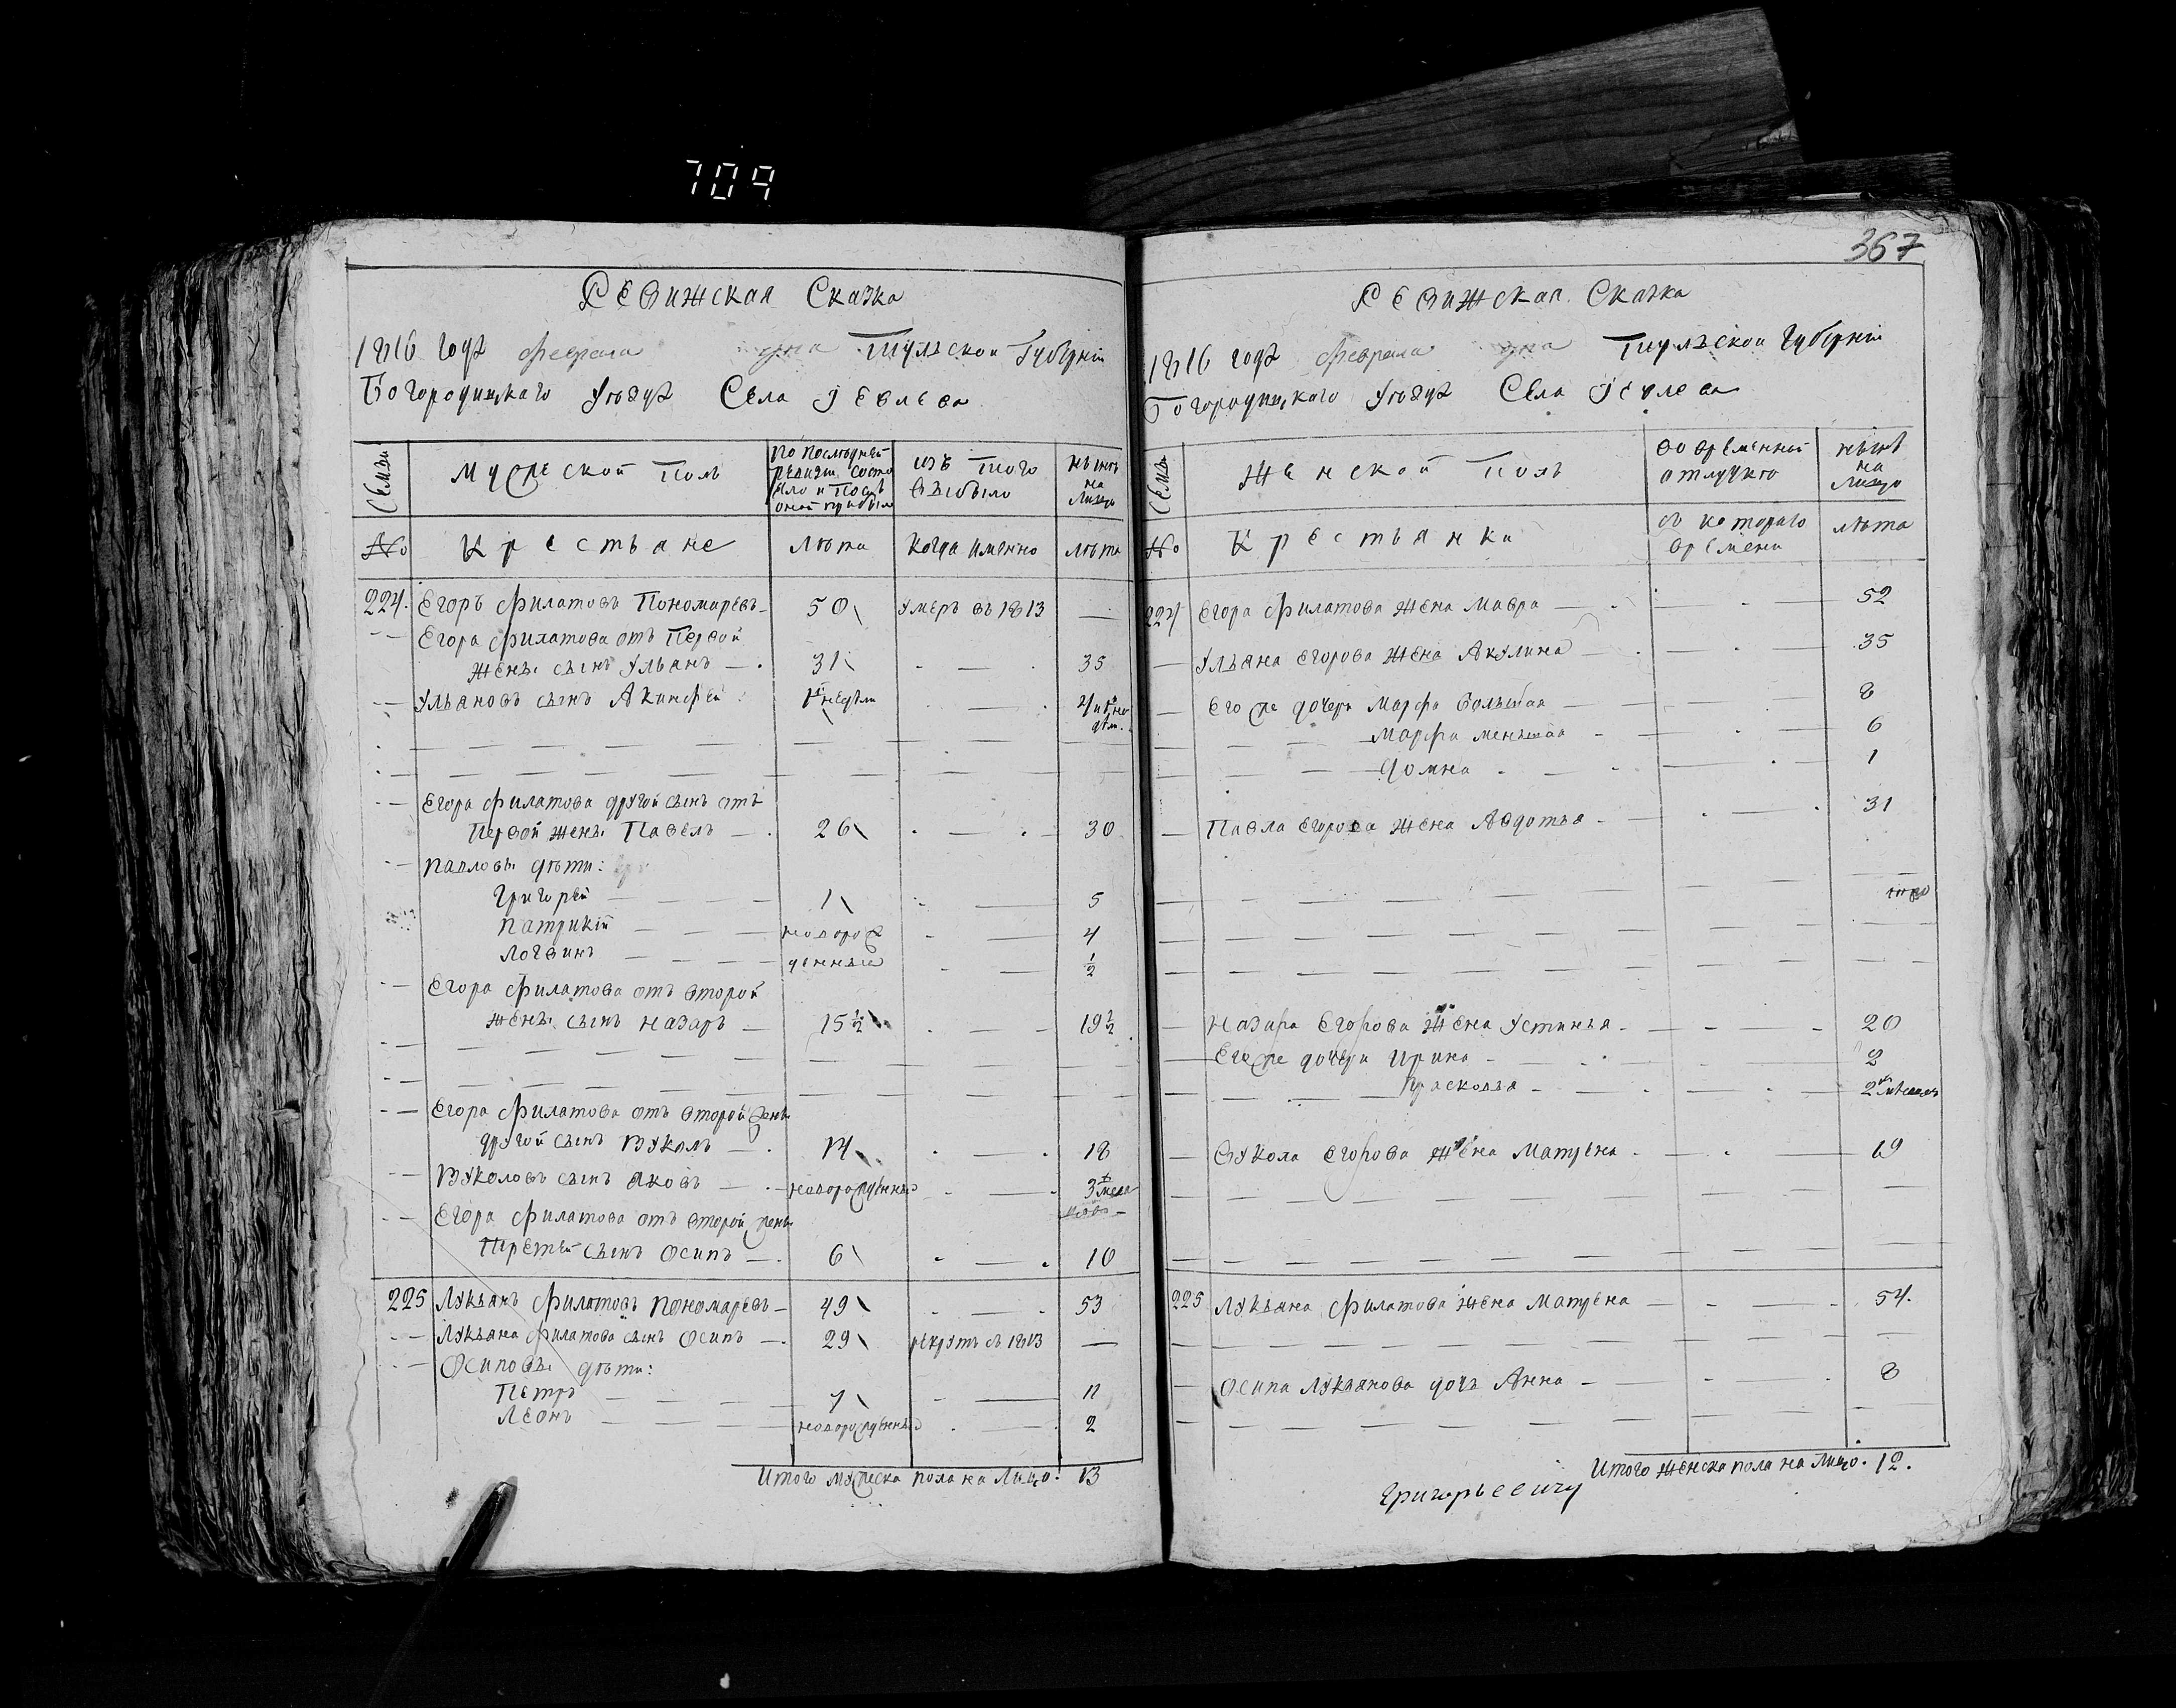 709
367
Ревижская Сказка
1816 годѣ февраля дня Тульской Губерніи
Богородицкаго Уѣздѣ Села Іевлева
Семьи
Мужеской Полъ
По последней ревизіи состояло и послѣ оной прибыло
изъ того выбыло
нынѣ на лицо
№
Крестьяне
лѣта
когда именно
лѣта
224. Егоръ Филатовъ Пономаревъ 50 умеръ въ 1813 —
Егора Филатова отъ Первой
жены сынъ Ульянъ — 31 35
Ульяновъ сынъ Акинфей 1 недѣли
Егора Филатова другой сынъ отъ
Первой жены Павелъ — 26 30
Павловы дѣти:
Григорей 1 5
Патрикій новорож 4
Логвинъ денныи ½
Егора Филатова отъ второй
жены сынъ Назаръ — 15½ 19½
Егора Филатова отъ второй жены
другой сынъ Вуколъ — 14 18
Вуколовъ сынъ Яковъ — новорожденный 3
Егора Филатова отъ второй жены
Третей сынъ Осипъ — 6 10
225 Лукьянъ Филатовъ Пономаревъ — 49 53
Лукьяна Филатова сынъ Осипъ — 29 рекрутъ съ 1813 —
Осиповы дѣти:
Петръ 7 11
Леонъ новорожденный 2
Итого мужеска пола на лицо. 13
Ревижская Сказка
1816 годѣ февраля дня Тульской Губерніи
Богородицкаго Уѣздѣ Села Іевлева
Семьи
Женской Полъ
во временной отлучкѣ
нынѣ на лицо
№
Крестьянки
съ котораго времени
лѣта
224 Егора Филатова жена Мавра — 52
Ульяна Егорова жена Акулина 35
Его же дочери Марфа большая 8
Марфа меньшая 6
Домна 1
Павла Егорова жена Авдотья 31
Назара Егорова жена Устинья 20
Его же дочери Ирина 2
Прасковья 2 месяцовъ
Вукола Егорова жена Матрена 19
225 Лукьяна Филатова жена Матрена 54.
Осипа Лукьянова дочь Анна 8
Итого женска пола на лицо. 12.
Григорьевичу